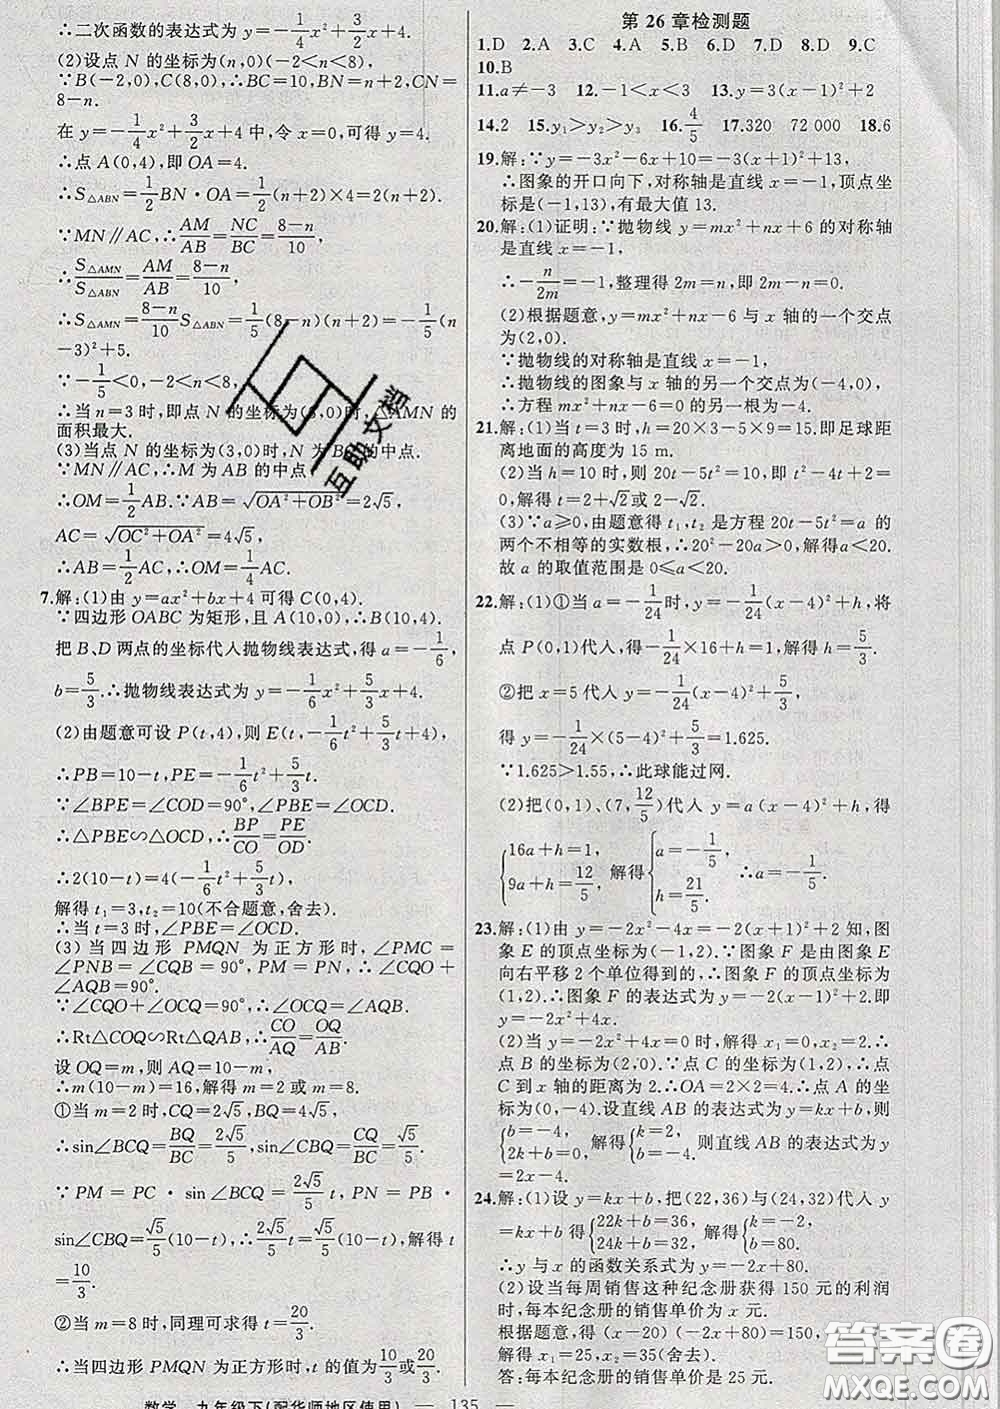 ∴二次函数的表达式为 y=-1/4x²+3/2x+4.
(2)设点 N 的坐标为(n,0)(-2<n<8),
∵B(-2,0),C(8,0),∴BC=10,BN=n+2,CN=
8-n.
在 y=-1/4x²+3/2x+4 中,令 x=0,可得 y=4.
∴点 A(0,4),即 OA=4.
∴S△ABN=1/2BN·OA=1/2(n+2)×4=2(n+2).
∵MN∥AC,∴AM/AB=NC/BC=(8-n)/10,
∴S△AMN/S△ABN=AM/AB=(8-n)/10
∴S△AMN=(8-n)/10 S△ABN=1/5(8-n)(n+2)=-1/5(n
-3)²+5.
∵-1/5<0,-2<n<8,
∴当 n=3 时,即点 N 的坐标为(3,0)时,△AMN 的
面积最大.
(3)当点 N 的坐标为(3,0)时,N 为BC中点.
∵MN∥AC,∴M 为 AB 的中点
∴OM=1/2AB.∵AB=√(OA²+OB²)=2√5,
AC=√(OC²+OA²)=4√5,
∴AB=1/2AC,∴OM=1/4AC.
7.解:(1)由 y=ax²+bx+4 可得 C(0,4).
∵四边形 OABC 为矩形,且 A(10,0),∴B(10,4).
把 B、D 两点的坐标代入抛物线表达式,得 a=-1/6,
b=5/3.∴抛物线表达式为 y=-1/6x²+5/3x+4.
(2)由题意可设 P(t,4),则 E(t,-1/6t²+5/3t+4),
∴PB=10-t,PE=-1/6t²+5/3t.
∵∠BPE=∠COD=90°,∠PBE=∠OCD.
∴△PBE∽△OCD,∴BP/CO=PE/OD.
∴2(10-t)=4(-1/6t²+5/3t),
解得 t₁=3,t₂=10(不合题意,舍去).
∴当 t=3 时,∠PBE=∠OCD.
(3) 当四边形 PMQN 为正方形时,∠PMC=
∠PNB=∠CQB=90°,PM=PN,∴∠CQO+
∠AQB=90°.
∵∠CQO+∠OCQ=90°,∴∠OCQ=∠AQB.
∴Rt△COQ∽Rt△QAB,∴CO/AQ=OQ/AB.
设 OQ=m,则 AQ=10-m,
∴m(10-m)=16,解得 m=2或 m=8.
①当 m=2时,CQ=2√5,BQ=4√5.
∴sin∠BCQ=BQ/BC=2√5/5,sin∠CBQ=CQ/BC=√5/5.
∵PM=PC·sin∠BCQ=2√5/5t,PN=PB·
sin∠CBQ=√5/5(10-t),∴2√5/5t=√5/5(10-t),解得 t
=10/3.
②当 m=8 时,同理可求得 t=20/3.
∴当四边形 PMQN 为正方形时,t 的值为10/3或20/3.
第 26 章检测题
1.D 2.A 3.C 4.A 5.B 6.D 7.D 8.D 9.C
10.B
11.a≠-3 12.-1<x<3 13.y=3(x-1)²+2
14.2 15.y₁>y₂>y₃ 16.4/5 17.320 72 000 18.6
19.解:∵y=-3x²-6x+10=-3(x+1)²+13,
∴图象的开口向下,对称轴是直线 x=-1,顶点坐
标是(-1,13),有最大值 13.
20.解:(1)证明:∵抛物线 y=mx²+nx+6 的对称轴
是直线 x=-1,
∴-n/2m=-1,整理得 2m=n,即 2m-n=0.
(2)根据题意,y=mx²+nx-6 与 x 轴的一个交点
为(2,0).
∵抛物线的对称轴是直线 x=-1,
∴抛物线的图象与 x 轴的另一个交点为(-4,0),
∴方程 mx²+nx-6=0 的另一个根为-4.
21.解:(1)当 t=3 时,h=20×3-5×9=15.即足球距
离地面的高度为 15 m.
(2)当 h=10 时,则 20t-5t²=10,即 t²-4t+2=
0,解得 t=2+√2或 2-√2.
(3)∵a≥0,由题意得 t₁,t₂ 是方程 20t-5t²=a 的
两个不相等的实数根,∴20²-20a>0,解得 a<20.
故 a 的取值范围是 0≤a<20.
22.解:(1)①当 a=-1/24时,y=-1/24(x-4)²+h,将
点 P(0,1)代入,得-1/24×16+h=1,解得 h=5/3.
②把 x=5 代入 y=-1/24(x-4)²+5/3,
得 y=-1/24×(5-4)²+5/3=1.625.
∵1.625>1.55,∴此球能过网.
(2)把(0,1)、(7,12/5)代入 y=a(x-4)²+h,得
{16a+h=1, 9a+h=12/5, 解得{a=-1/5, h=21/5. ∴a=-1/5.
23.解:(1)由 y=-2x²-4x=-2(x+1)²+2 知,图
象 E 的顶点坐标为(-1,2).∵图象 F 是由图象 E
向右平移 2 个单位得到的,∴图象 F 的顶点坐标为
(1,2).∴图象 F 的表达式为 y=-2(x-1)²+2.即
y=-2x²+4x.
(2)当-2x²+4x=0 时,解得 x₁=0,x₂=2.∴
点 B 的坐标为(2,0).∵点 C 的坐标为(1,2),∴点
C 到 x 轴的距离为 2.∴OA=2×2=4.∴点 A 的坐
标为(0,-4).设直线 AB 的表达式为 y=kx+b,则
{b=-4, 2k+b=0, 解得{b=-4, k=2. 则直线 AB 的表达式为 y
=2x-4.
24.解:(1)设 y=kx+b,把(22,36)与(24,32)代入 y
=kx+b 得{22k+b=36, 24k+b=32, 解得{k=-2, b=80.
∴y 与 x 的函数关系式为 y=-2x+80.
(2)设当每周销售这种纪念册获得 150 元的利润
时,每本纪念册的销售单价为 x 元.
根据题意,得(x-20)(-2x+80)=150,
解得 x₁=25,x₂=35(舍去)
答:每本纪念册的销售单价
数学 九年级下(配华师地区使用) — 135 —
互助文档
答案圈
MXQE.COM